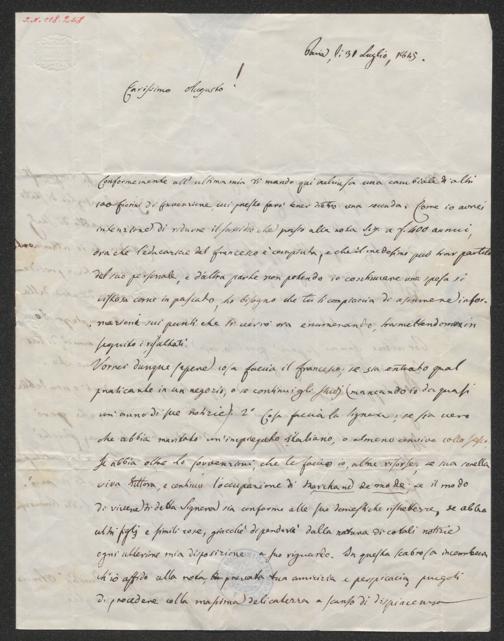 2.N. 118.248
li 31 Luglio, 1845.
Carissimo Augusto!
Conformemente all' ultima mia ti mando qui acclusa una cambiale di altri
100 fiorini di Convenzione cui presto farò tener dietro una seconda. Come io avrei
intenzione di ridurre il sussidio che passo alla nota Sig.a a f. 400 annui,
ora che l'educazione del francese è compiuta, e che il medesimo può trar partito
del suo personale, e d'altra parte non potendo io continuare una spesa sì
vistosa come in passato, ho bisogno che tu ti compiaccia di assumere infor-
mazioni sui punti che ti verrò ora enumerando, trasmettendomene in
seguito i risultati.
Vorrei dunque sapere 1° cosa faccia il francese, se sia entrato qual
praticante in un negozio, o se continui gli studj (mancando io da quasi
un anno di sue notizie) 2° Cosa faccia la Signora, se sia vero
che abbia maritato un impiegato italiano, o almeno conviva collo stesso.
Se abbia oltre le sovvenzioni, che le faccio io, altre risorse, se sua sorella
viva tuttora, e continui l'occupazione di Marchand de mode: se il modo
di vivere di detta Signora sia conforme alle sue domestiche ristrettezze, se abbia
altri figlj e simili cose, giacchè dipenderà dalla natura di cotali notizie
ogni ulteriore mia disposizione a suo riguardo. In questa scabrosa incombenza
ch'io affido alla nota, tua amicizia e perspicacia, pregoti
di procedere colla massima delicatezza a scanso di dispiacenze